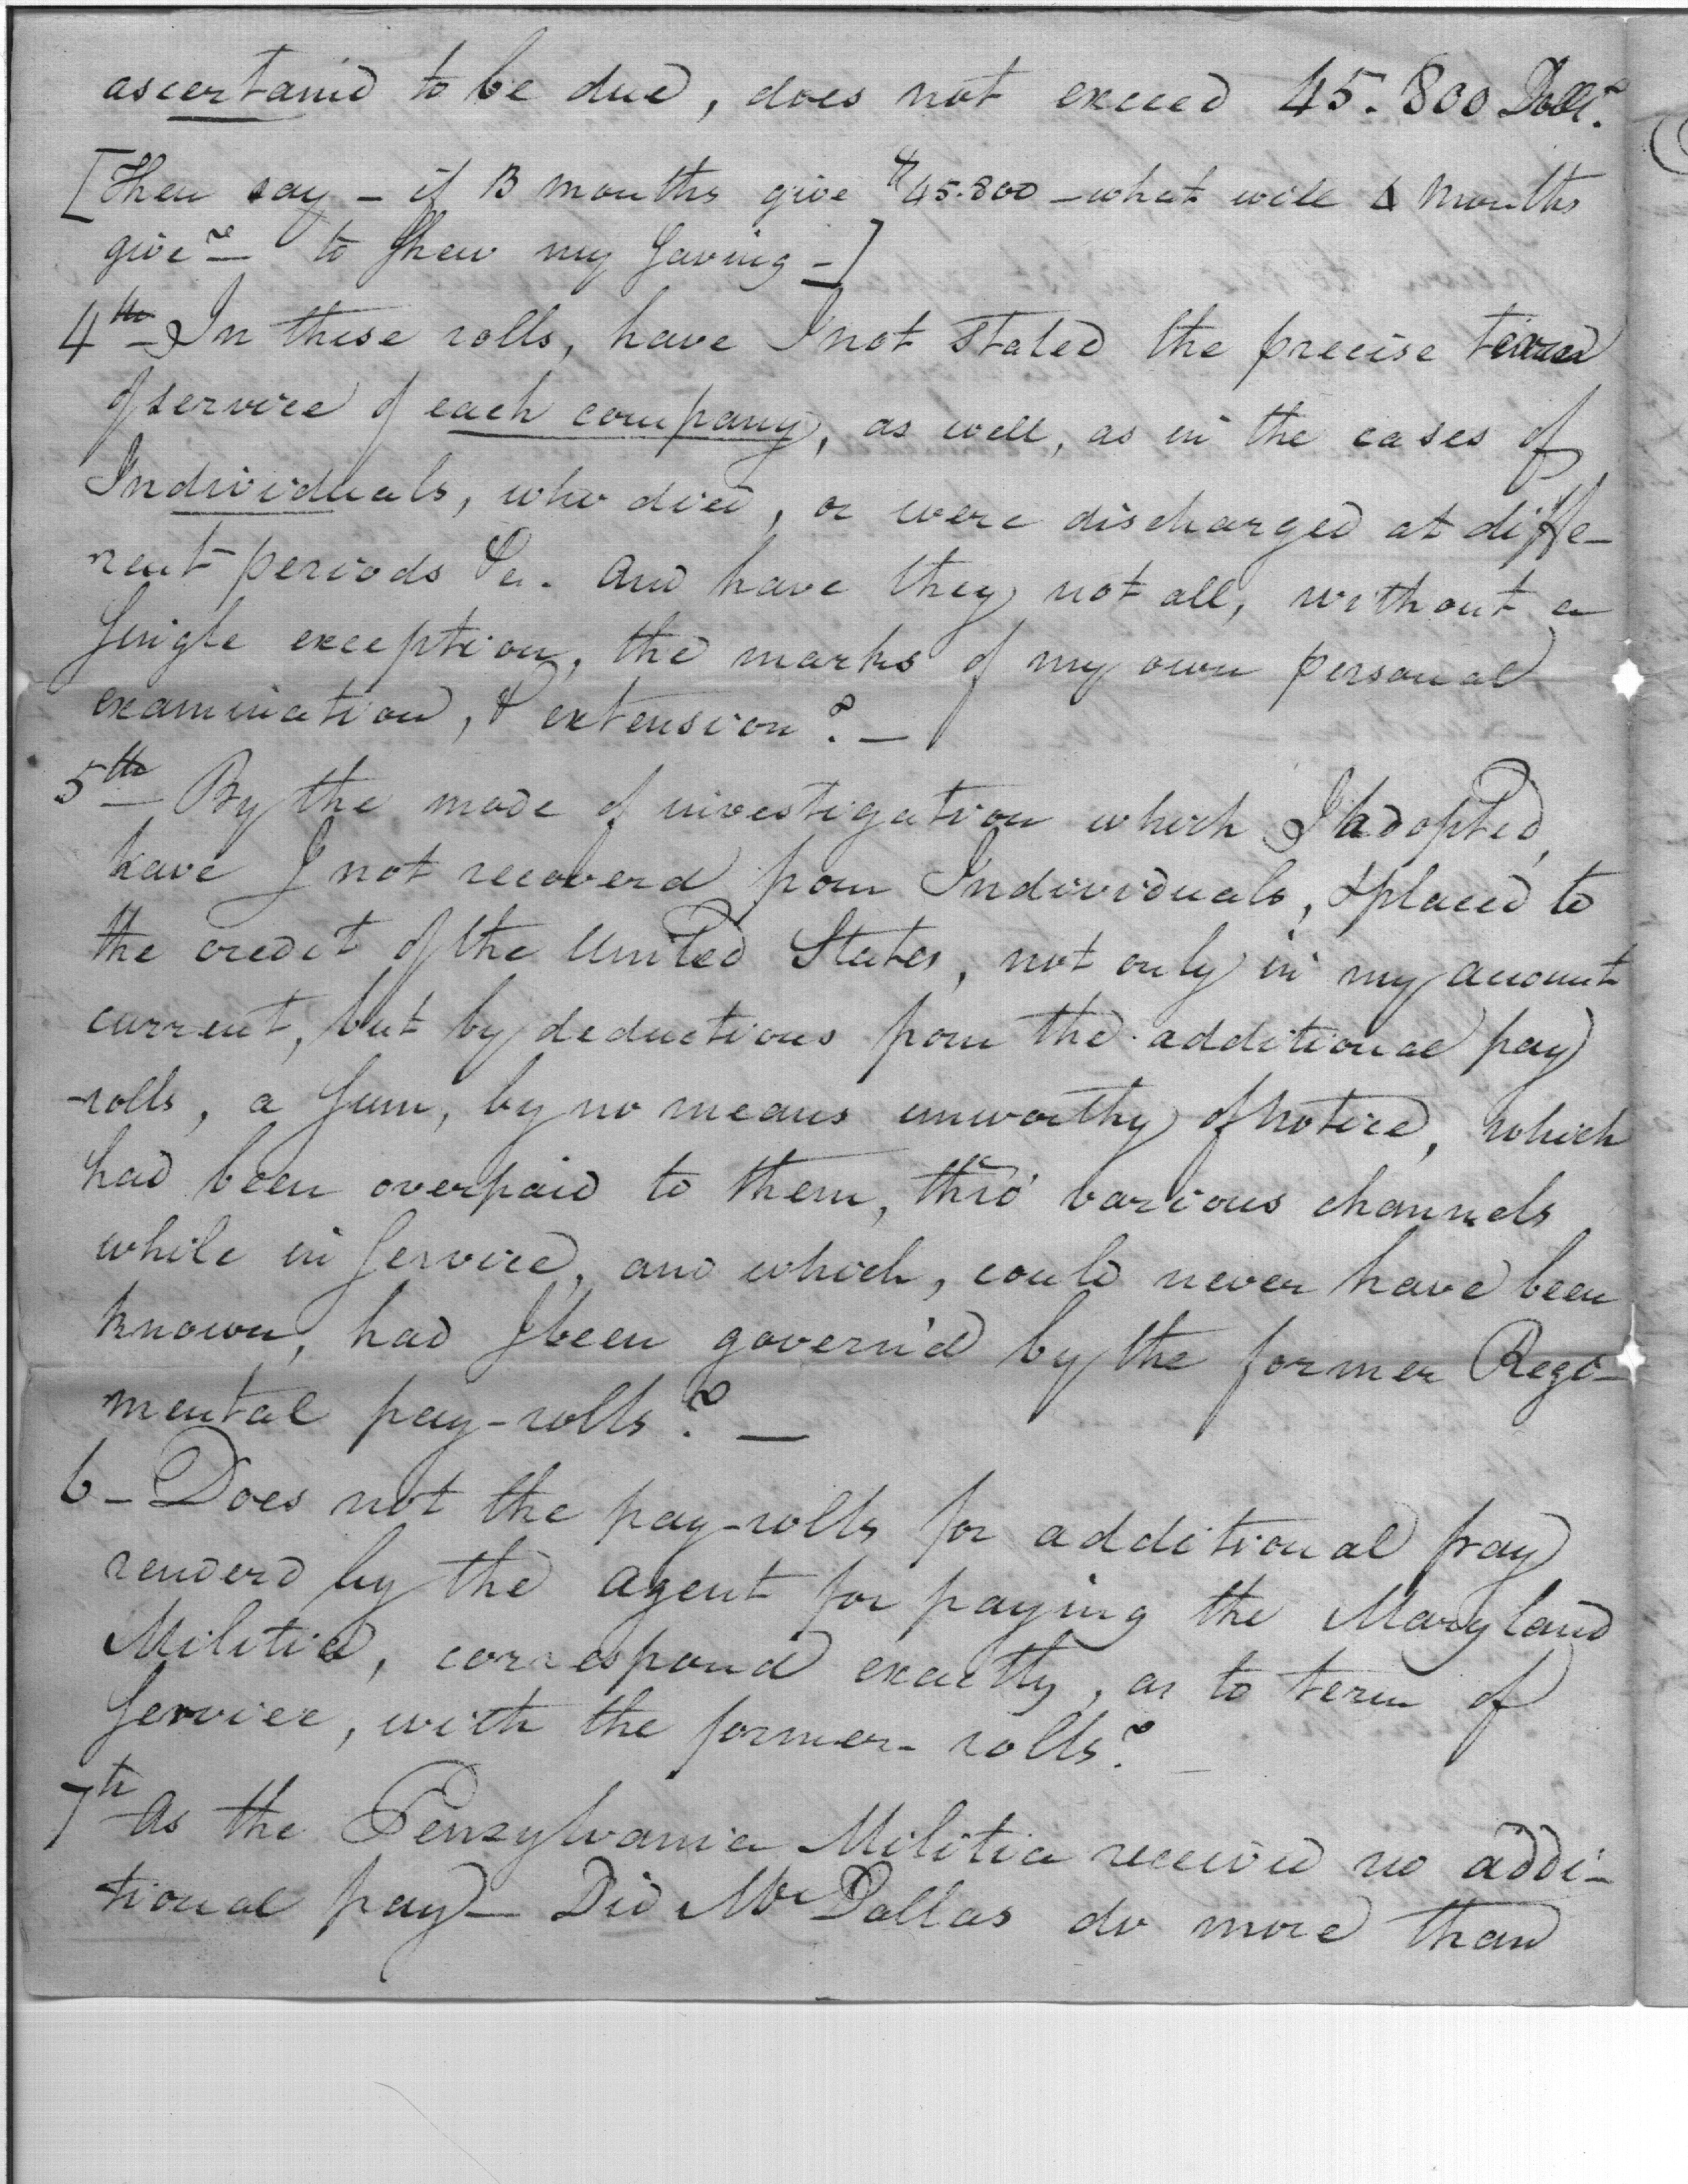 ascertained to be due, does not exceed 45.800 Dolls.
[Then say – if 3 months give $45.800 – what will months
give? – to shew my saving –]
4th In these rolls, have I not stated the precise term
of service of each company, as well, as in the cases of
Individuals, who died, or were discharged at diffe–
rent periods &c. and have they not all, without a
single exception, the marks of my own personal
examination, & extension? –
5th – By the mode of investigation which I adopted,
have I not recoverd from Individuals, & placed to
the credit of the United States, not only in my account
current, but by deductions from the additional pay
-rolls, a sum, by no means unworthy of notice, which
had been overpaid to them, thro' various channels
while in service, and which, could never have been
known, had I been govern'd by the former Regi–
mental pay-rolls? —
6 – Does not the pay-rolls for additional pay
renderd by the agent for paying the Maryland
Militia, correspond exactly, as to term of
service, with the former- rolls?
7th As the Penzylvania Militia received no addi–
tional pay – Did Mr Dallas do more than